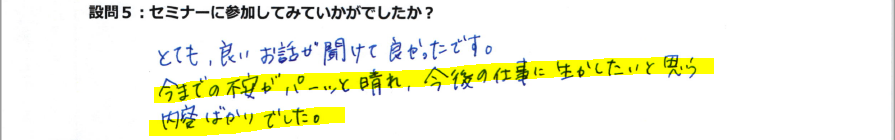 設問５：セミナーに参加してみていかがでしたか？
とても、良い お話が 聞けて 良かったです。
今までの不安が パーッと 晴れ、今後の仕事に 生かしたいと思う
内容ばかりでした。